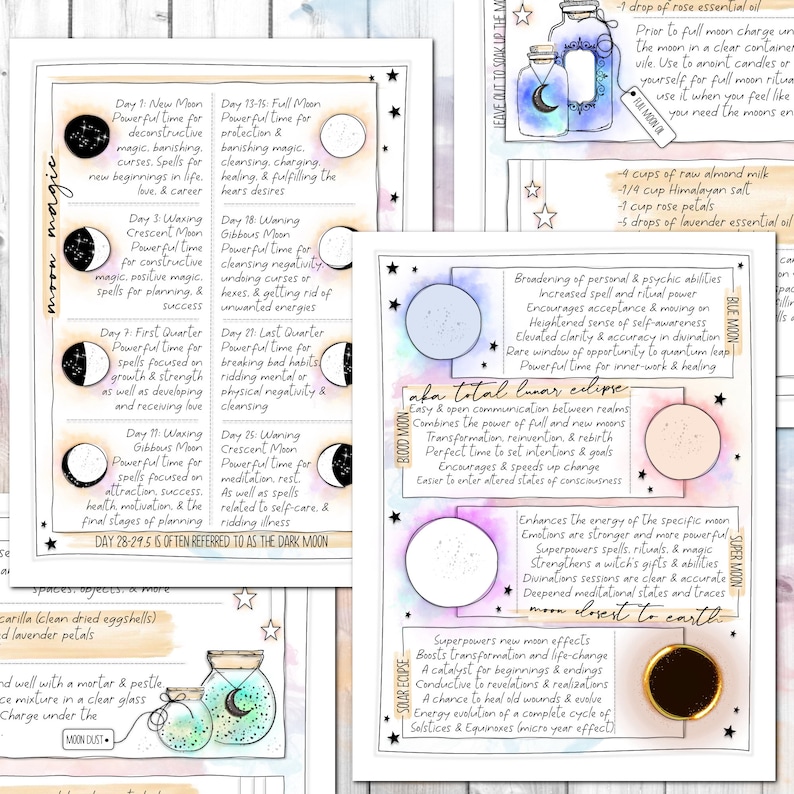 moon magic
Day 1: New Moon
Powerful time for
deconstructive
magic, banishing,
curses. Spells for
new beginnings in life,
love, & career
Day 3: Waxing
Crescent Moon
Powerful time
for constructive
magic, positive magic,
spells for planning, &
success
Day 7: First Quarter
Powerful time for
spells focused on
growth & strength
as well as developing
and receiving love
Day 11: Waxing
Gibbous Moon
Powerful time for
spells focused on
attraction, success,
health, motivation, & the
final stages of planning
Day 13-15: Full Moon
Powerful time for
protection &
banishing magic,
cleansing, charging,
healing, & fulfilling the
hears desires
Day 18: Waning
Gibbous Moon
Powerful time for
cleansing negativity,
undoing curses or
hexes, & getting rid of
unwanted energies
Day 21: Last Quarter
Powerful time for
breaking bad habits,
ridding mental or
physical negativity &
cleansing
Day 25: Waning
Crescent Moon
Powerful time for
meditation, rest.
As well as spells
related to self-care, &
ridding illness
DAY 28-29.5 IS OFTEN REFERRED TO AS THE DARK MOON
-1 drop of rose essential oil
LEAVE OUT TO SOAK UP THE
Prior to full moon charge un
the moon in a clear container
vile. Use to anoint candles or
yourself for full moon ritual
use it when you feel like
you need the moons en
FULL MOON OIL
-4 cups of raw almond milk
-1/4 cup Himalayan salt
-1 cup rose petals
-5 drops of lavender essential oil
Broadening of personal & psychic abilities
Increased spell and ritual power
Encourages acceptance & moving on
Heightened sense of self-awareness
Elevated clarity & accuracy in divination
Rare window of opportunity to quantum leap
Powerful time for inner-work & healing
BLUE MOON
aka total lunar eclipse
BLOOD MOON
Easy & open communication between realms
Combines the power of full and new moons
Transformation, reinvention, & rebirth
Perfect time to set intentions & goals
Encourages & speeds up change
Easier to enter altered states of consciousness
Enhances the energy of the specific moon
Emotions are stronger and more powerful
Superpowers spells, rituals, & magic
Strengthens a witch's gifts & abilities
Divinations sessions are clear & accurate
Deepened meditational states and traces
SUPER MOON
moon closest to earth
SOLAR ECLIPSE
Superpowers new moon effects
Boosts transformation and life-change
A catalyst for beginnings & endings
Conductive to revelations & realizations
A chance to heal old wounds & evolve
Energy evolution of a complete cycle of
Solstices & Equinoxes (micro year effect)
spaces, objects, & more
carilla (clean dried eggshells)
ed lavender petals
nd well with a mortar & pestle
ce mixture in a clear glass
Charge under the
MOON DUST